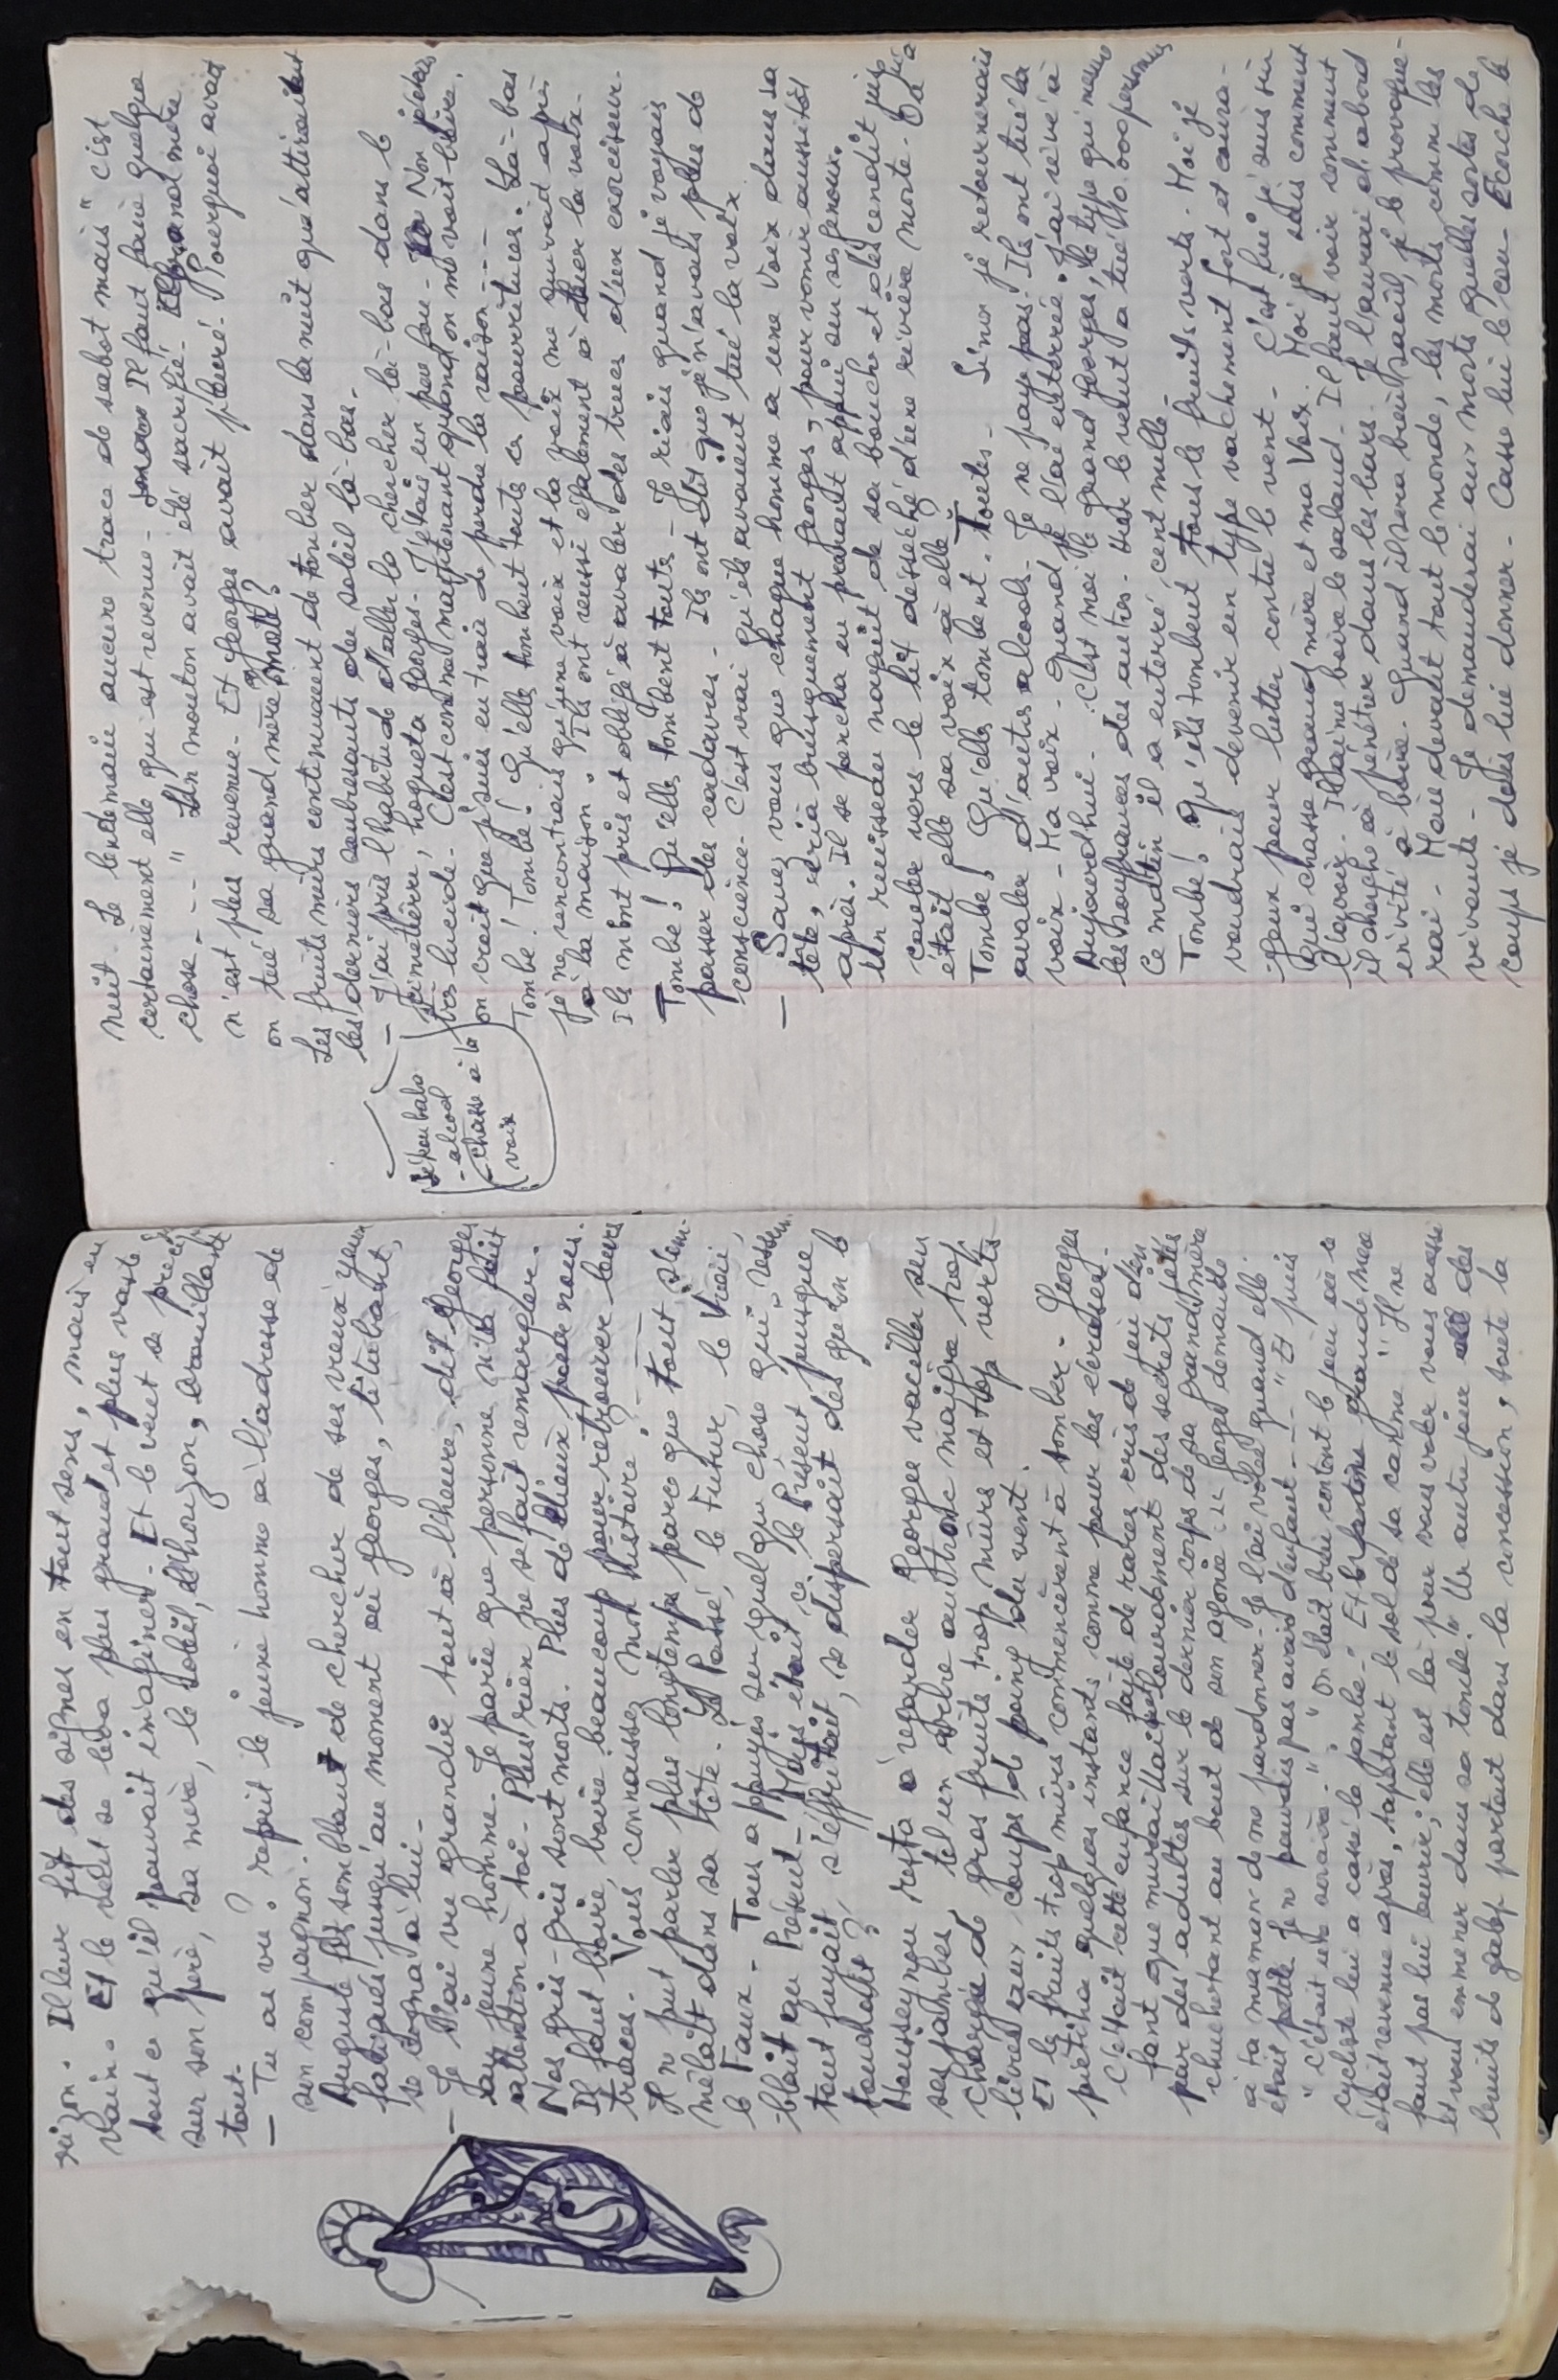 rizon. Il leur fit des signes en tout sens, mais en
vain. Et le soleil se leva plus grand et plus vaste
tout ce qu'il pouvait imaginer. Et le vent se
sur son père, sa mère, le soleil, l'horizon, brouillant
tout.
— Tu as vu? reprit le jeune homme à l'adresse de
son compagnon.
Auguste fit semblant de chercher de ses vieux yeux
fatigués jusqu'au moment où Georges, titubant,
se cogna à lui.
— Je t'ai vu grandir tout à l'heure, dit Georges
au jeune homme. Je parie que personne n'a fait
attention à toi. Plus rien ne se fait remarquer.
Nos gris-gris sont morts. Plus de lieux pour nous.
Il faut boire, boire beaucoup pour retrouver leurs
traces. Vous connaissez mon histoire?
Il ne put parler plus longtemps parce que tout s'em-
mêlait dans sa tête. Le Passé, le Futur, le Vrai,
le Faux. Tous appuyés sur quelque chose qui ressem-
blait au Présent. Mais était-ce le Présent puisque
tout fuyait, s'effritait, se dispersait dès qu'on le
touchait?
Housseynou resta à regarder Georges vaciller sur
ses jambes, tel un arbre au tronc maigre trop
chargé de gros fruits trop mûrs et trop verts
livrés aux coups de poing du vent.
Et les fruits trop mûrs commencèrent à tomber. Georges
piétina quelques instants comme pour les écraser.
C'était cette enfance faite de rares cris de joie d'en
fant que murailla lourdement des secrets jetés
par des adultes sur le dernier corps de sa grand mère
chuchotant au bout de son agonie : " Georges demande
à ta maman de me pardonner. Je l'ai volée quand elle
était petite Je ne pouvais pas avoir d'enfant - - " Et puis
" c'était une sorcière. " " On était bien content le jour où le
cycliste lui a cassé la jambe. " Et le fantôme grand mère
était revenue après, tapotant le sol de sa canne. " Il ne
faut pas lui ouvrir; elle est là pour vous voler vous aussi
et vous emmener dans sa tombe. " Un autre jour des
bruits de galop partout dans la concession, toute la
nuit. Le lendemain aucune trace de sabot mais " c'est
certainement elle qui est revenue. Il faut faire quelque
chose - - - " Un mouton avait été sacrifié. Et grand mère
n'est plus revenue. Et Georges avait pleuré. Pourquoi avait
on tué sa grand mère morte?
Les fruits mûrs continuaient de tomber dans la nuit qu'attiraient
les derniers soubresauts du soleil là-bas.
— J'ai pris l'habitude d'aller le chercher là-bas dans le
cimetière, hoqueta Georges. J'étais un peu fou. Non j'étais
très lucide. C'est comme maintenant quand on me voit boire,
on croit que je suis en train de perdre la raison - - -
Tombe! Tombe! Qu'elle tombent toutes ces pourritures. Là-bas
je ne rencontrais qu'une voix et la voix me suivait après
à la maison. Ils ont réussi également à tuer la voix.
Ils m'ont pris et obligé à avaler des trucs d'un exorciseur.
Tombe! Qu'elle tombent toutes - Je riais quand je voyais
passer des cadavres. Ils ont dit que je n'avais plus de
conscience. C'est vrai qu'ils avaient tué la voix.
— Savez vous que chaque homme a une Voix dans sa
tête, cria brusquement Georges, pour vomir aussitôt
après. Il se pencha en prenant appui sur ses genoux.
Un ruisseau naquit de sa bouche et descendit puis
couler vers le lit désséché d'une rivière morte. Où
était elle sa voix à elle?
Tombe! Qu'elles tombent. Toutes. Sinon je retournerais
avaler d'autres alcools. Je ne paye pas. Ils ont tué la
voix - Ma voix. Quand je l'ai enterrée. J'ai rêvé à
Aujourd'hui. C'est moi le grand Georges, le type qui mesure
les souffrances des autres. Hier le vent a tué 110.000 personnes
Ce matin il a enterré cent mille.
Tombe! Qu'ils tombent tous les fruits verts. Moi je
voudrais devenir un type vachement fort et coura-
geux pour lutter contre le vent. C'est lui j'suis sûr
qui chasse grand mère et ma Voix. Moi je sais comment
l'avoir. Il aime boire le salaud. Il faut voir comment
il cherche à pénétrer dans les bars. Je l'aurai d'abord
invité à boire. Quand il sera bien saoûl, je le provoque-
rai. Mais devant tout le monde, les morts comme les
vivants. Je demanderai aux morts quelles sortes de
coups je dois lui donner. Casse lui le cou. Ecorche le
- alcool
- chasse à la
voix